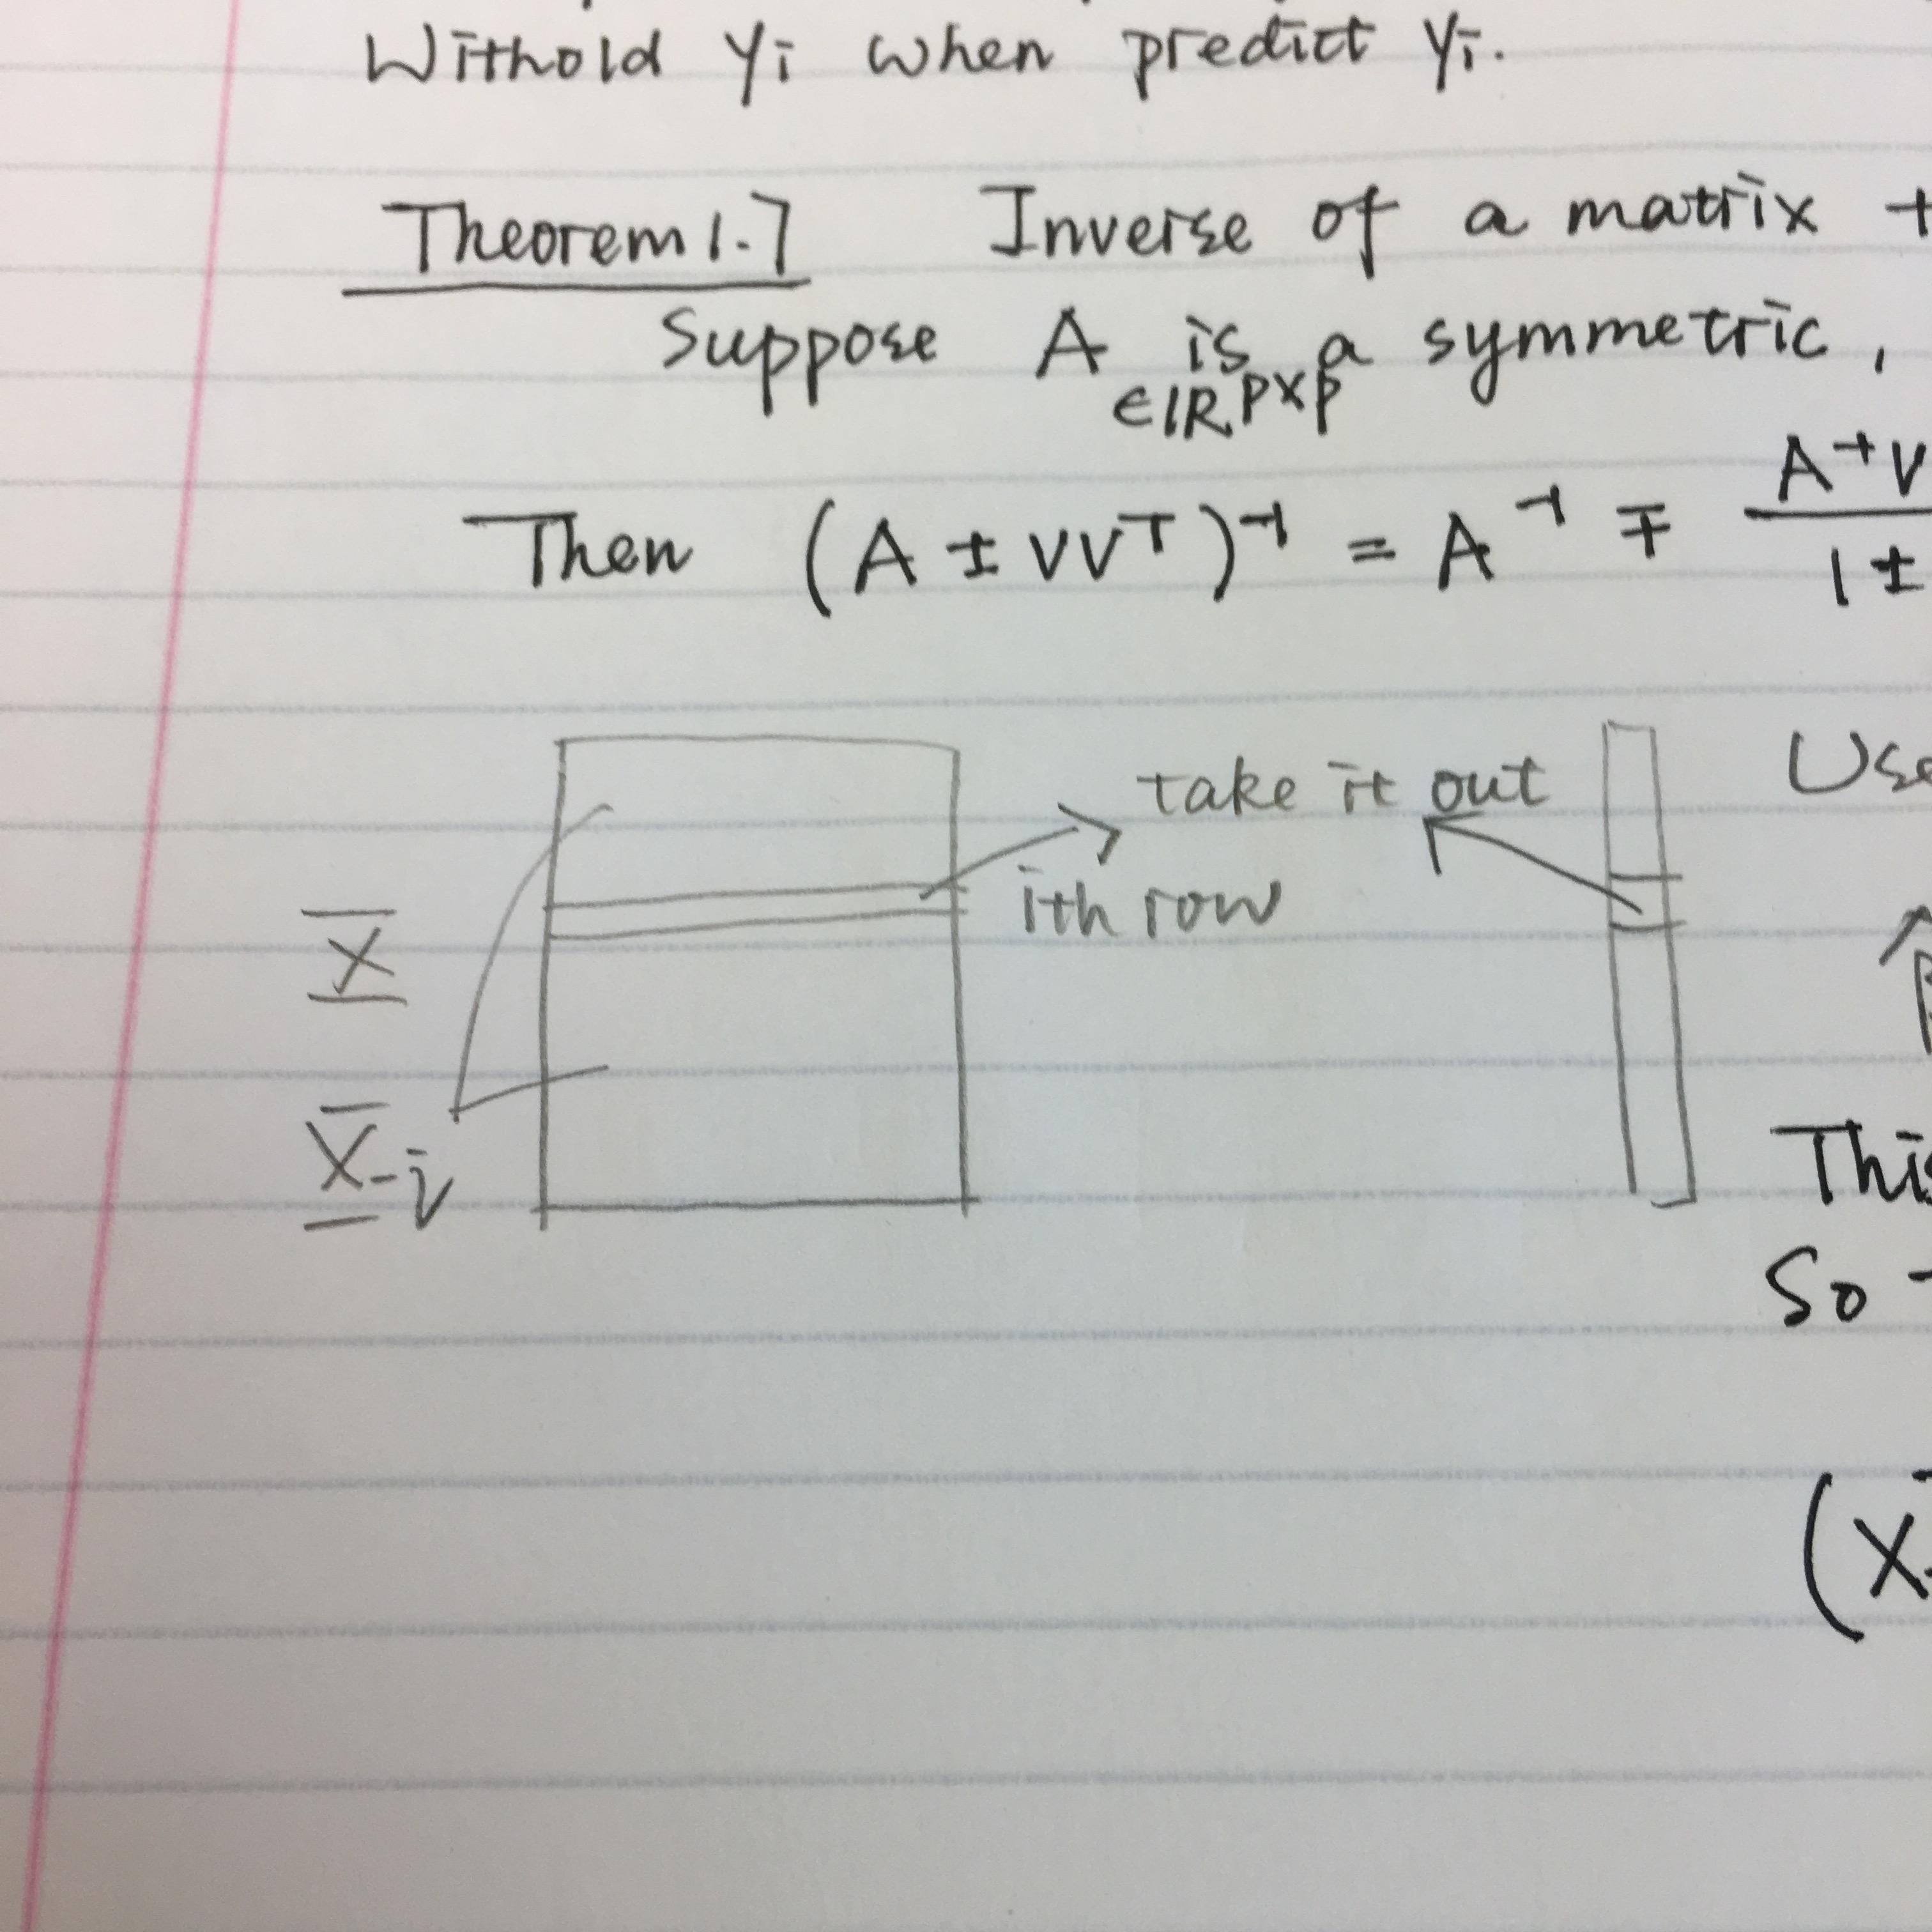 Withold yi when predict yi.
Theorem 1.7 Inverse of a matrix +
Suppose A is a symmetric,
∈ℝ^{p×p}
Then (A ± vv^T)^{-1} = A^{-1} ∓ A^{-1}v
1 ±
take it out
Use
ith row
X
β̂
X-i
This
So -
(X-